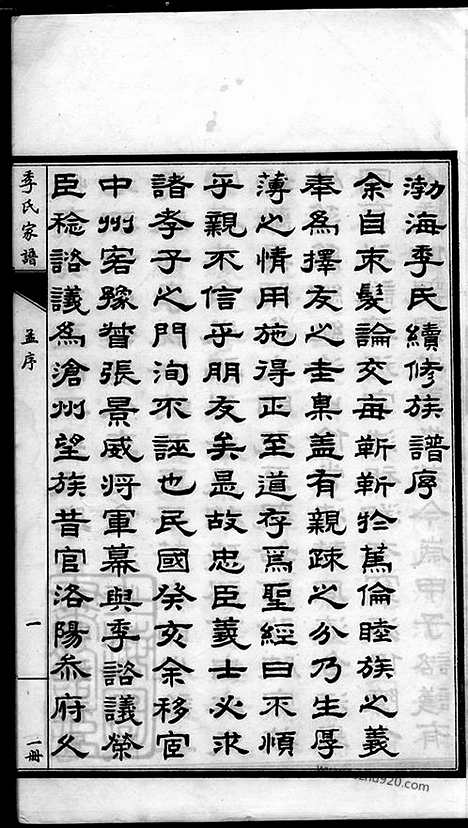 渤海季氏續修族譜序
余自束髮論交每斬斬於篤倫睦族之義
奉爲擇友之圭臬蓋有親疎之分乃生厚
薄之情用施得正至道存焉聖經曰不順
乎親不信乎朋友矣是故忠臣義士必求
諸孝子之門洵不誣也民國癸亥余移宦
中州客豫督張景威將軍幕與季諮議榮
臣稔諮議爲滄州望族昔官洛陽叅府久
季氏家譜
孟序
一
一冊